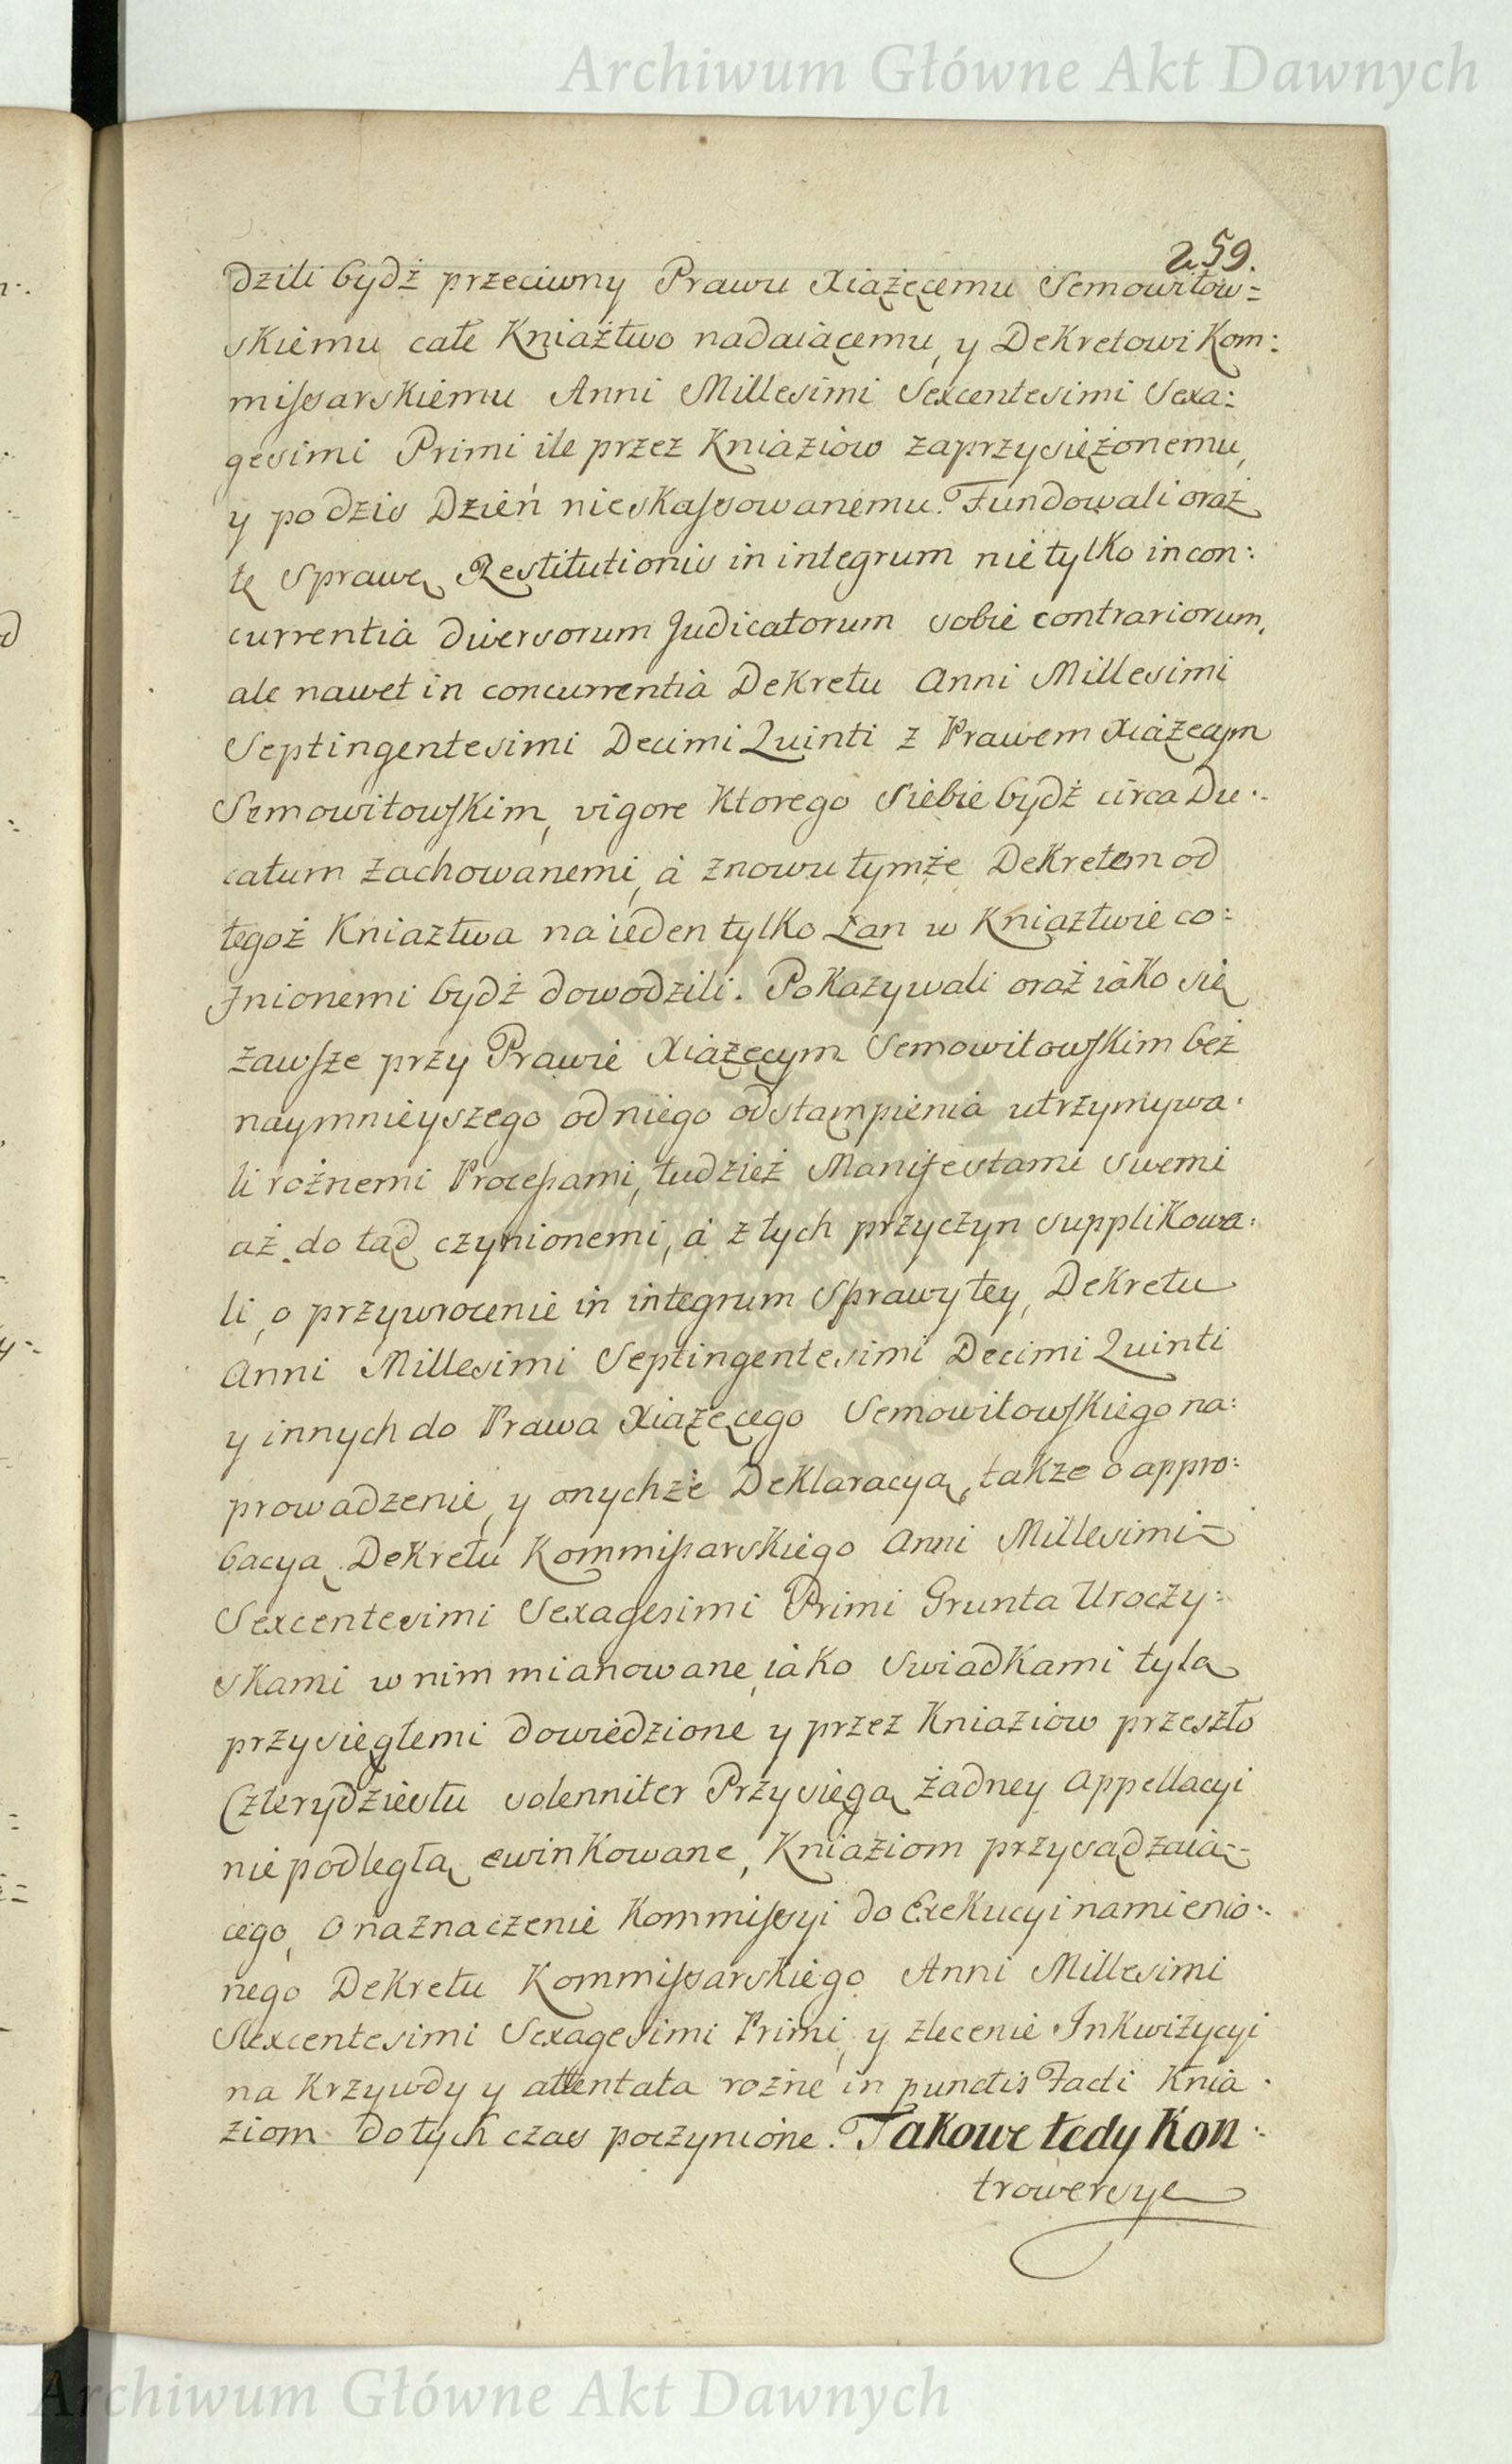 Archiwum Główne Akt Dawnych
259.
dzili bydź przeciwny Prawu Xiążęcemu Semowitow=
skiemu całe Kniaźtwo nadaiącemu, y Dekretowi Kom:
missarskiemu Anni Millesimi Sexcentesimi Sexa:
gesimi Primi ile przez Kniaziow zaprzysiężonemu,
y po dzis Dzień nieskassowanemu. Fundowali oraz
tę Sprawę Restitutionis in integrum nie tylko in con:
currentia diversorum Judicatorum sobie contrariorum,
ale nawet in concurrentia Dekretu Anni Millesimi
Septingentesimi Decimi Quinti z Prawem Xiążęcym
Semowitowskim, vigore ktorego siebie bydź circa Du:
catum zachowanemi, a znowu tymże Dekretem od
tegoż Kniaztwa na ieden tylko Łan w Kniaztwie co:
fnionemi bydź dowodzili. Pokazywali oraz iako się
zawsze przy Prawie Xiążęcym Semowitowskim bez
naymnieyszego od niego odstąmpienia utrzymywa:
li rożnemi Processami, tudzież Manifestami swemi
aż do tąd czynionemi, a z tych przyczyn supplikowa:
li, o przywrocenie in integrum Sprawy tey, Dekretu
Anni Millesimi Septingentesimi Decimi Quinti
y innych do Prawa Xiążęcego Semowitowskiego na:
prowadzenie, y onychże Deklaracyą, także o appro:
bacyą Dekretu Kommissarskiego Anni Millesimi=
Sexcentesimi Sexagesimi Primi Grunta Uroczy:
skami w nim mianowane, iako Swiadkami tylą
przysięgłemi dowiedzione y przez Kniaziow przeszło
Czterydziestu solenniter Przysięgą żadney Appellacyi
nie podległą ewinkowane, Kniaziom przysądzaią=
cego, o naznaczenie Kommissyi do Exekucyi namienio:
nego Dekretu Kommissarskiego Anni Millesimi
Sexcentesimi Sexagesimi Primi, y zlecenie Inkwizycyi
na Krzywdy y attentata rożne in punctis Facti Knia:
ziom do tych czas poczynione. Takowe tedy Kon:
trowersye
Archiwum Główne Akt Dawnych